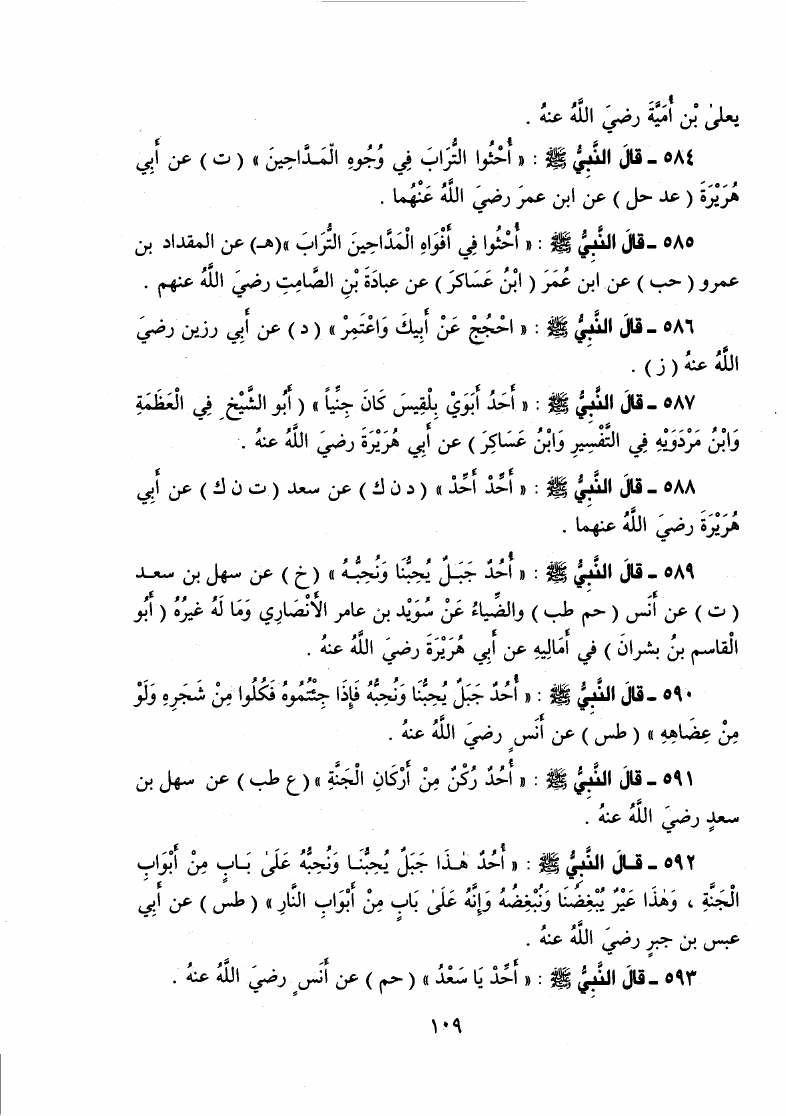 يعلىٰ بْن أُمَيَّةَ رضيَ اللَّهُ عنهُ .
٥٨٤ ـ قالَ النَّبِيُّ ﷺ : « أُحْثُوا التُّرَابَ فِي وُجُوهِ الْمَدَّاحِينَ » ( ت ) عن أَبِي
هُرَيْرَةَ ( عد حل ) عن ابن عمرَ رضيَ اللَّهُ عَنْهُما .
٥٨٥ ـ قالَ النَّبِيُّ ﷺ : « أُحْثُوا فِي أَفْوَاهِ الْمَدَّاحِينَ التُّرَابَ »(هـ) عن المقداد بن
عمرو ( حب ) عن ابن عُمَرَ ( ابْنُ عَسَاكرَ ) عن عبادَةَ بْنِ الصَّامِتِ رضيَ اللَّهُ عنهم .
٥٨٦ ـ قالَ النَّبِيُّ ﷺ : « احْجُجْ عَنْ أَبِيكَ وَاعْتَمِرْ » ( د ) عن أَبي رزين رضيَ
اللَّهُ عنهُ ( ز ) .
٥٨٧ ـ قالَ النَّبِيُّ ﷺ : « أَحَدُ أَبَوَيْ بِلْقِيسَ كَانَ جِنِّياً » ( أَبُو الشَّيْخِ فِي الْعَظَمَةِ
وَابْنُ مَرْدَوَيْهِ فِي التَّفْسِيرِ وَابْنُ عَسَاكِرَ ) عن أَبِي هُرَيْرَةَ رضيَ اللَّهُ عنهُ .
٥٨٨ ـ قالَ النَّبِيُّ ﷺ : « أَحِّدْ أَحِّدْ » ( د ن ك ) عن سعد ( ت ن ك ) عن أَبي
هُرَيْرَةَ رضيَ اللَّهُ عنهما .
٥٨٩ ـ قالَ النَّبِيُّ ﷺ : « أُحُدٌ جَبَـلٌ يُحِبُّنَا وَنُحِبُّـهُ » ( خ ) عن سهل بن سعـد
( ت ) عن أَنس ( حم طب ) والضِّياءُ عَنْ سُوَيْد بن عامر الأَنْصَارِي وَمَا لَهُ غيرُهُ ( أَبُو
الْقاسم بنُ بشرانَ ) في أَمَالِيهِ عن أَبِي هُرَيْرَةَ رضيَ اللَّهُ عنهُ .
٥٩٠ ـ قالَ النَّبِيُّ ﷺ : « أُحُدٌ جَبَلٌ يُحِبُّنَا وَنُحِبُّهُ فَإِذَا جِئْتُمُوهُ فَكُلُوا مِنْ شَجَرِهِ وَلَوْ
مِنْ عِضَاهِهِ » ( طس ) عن أَنَسٍ رضيَ اللَّهُ عنهُ .
٥٩١ ـ قالَ النَّبِيُّ ﷺ : « أُحُدٌ رُكْنٌ مِنْ أَرْكَانِ الْجَنَّةِ »( ع طب ) عن سهل بن
سعدٍ رضيَ اللَّهُ عنهُ .
٥٩٢ ـ قـالَ النَّبِيُّ ﷺ : « أُحُدٌ هـٰذَا جَبَلٌ يُحِبُّنَـا وَنُحِبُّهُ عَلَىٰ بَـابٍ مِنْ أَبْوَابِ
الْجَنَّةِ ، وَهٰذَا عَيْرٌ يُبْغِضُنَا وَنُبْغِضُهُ وَإِنَّهُ عَلَىٰ بَابٍ مِنْ أَبْوَابِ النَّارِ» ( طس ) عن أَبي
عبس بن جبرٍ رضيَ اللَّهُ عنهُ .
٥٩٣ ـ قالَ النَّبِيُّ ﷺ : « أَحِّدْ يَا سَعْدُ » ( حم ) عن أَنَسٍ رضيَ اللَّهُ عنهُ .
١٠٩